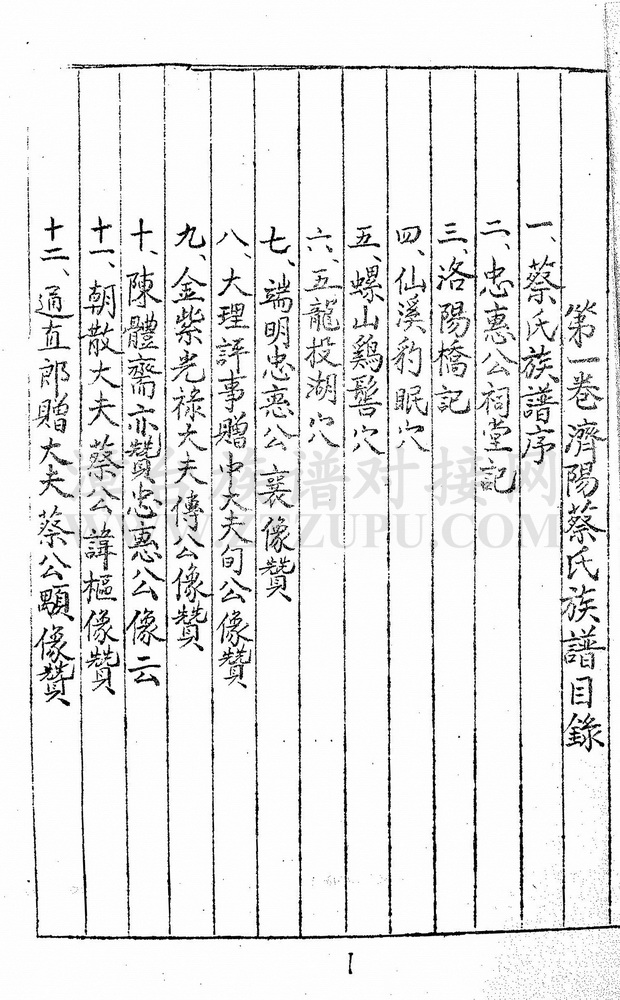 第一卷濟陽蔡氏族譜目錄
一、蔡氏族譜序
二、忠惠公祠堂記
三、洛陽橋記
四、仙溪豹眠穴
五、螺山鷄髻穴
六、五龍投湖穴
七、端明忠惠公襄像贊
八、大理評事贈中大夫旬公像贊
九、金紫光祿大夫傳公像贊
十、陳體齋亦贊忠惠公像云
十一、朝散大夫蔡公諱樞像贊
十二、通直郎贈大夫蔡公顒像贊
1
族谱对接网
WWW.ZUPU.COM